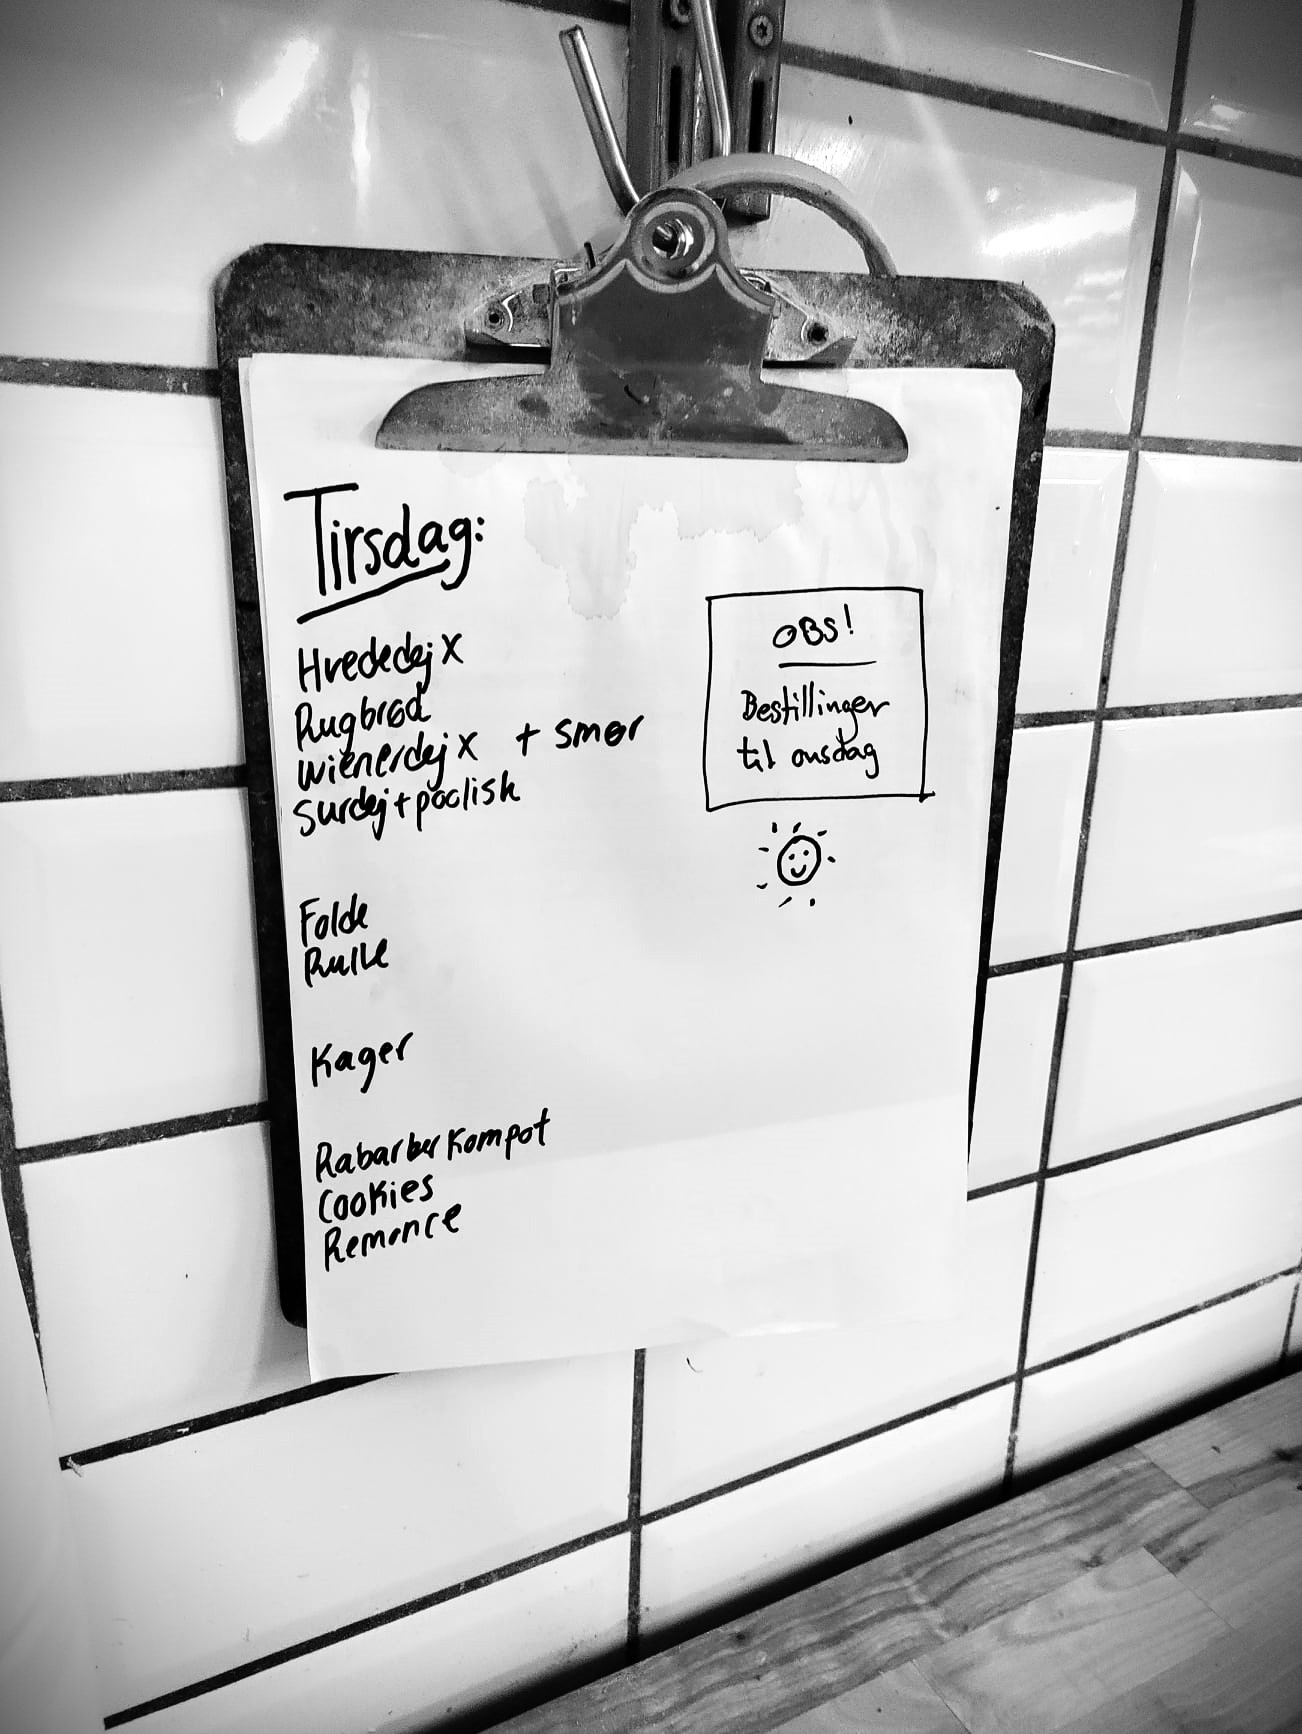 Tirsdag:
Hvededej X
Rugbrød
wienerdej X + smør
surdej + poolish
Folde
Rulle
Kager
Rabarber Kompot
Cookies
Remonce
OBS!
Bestillinger
til onsdag